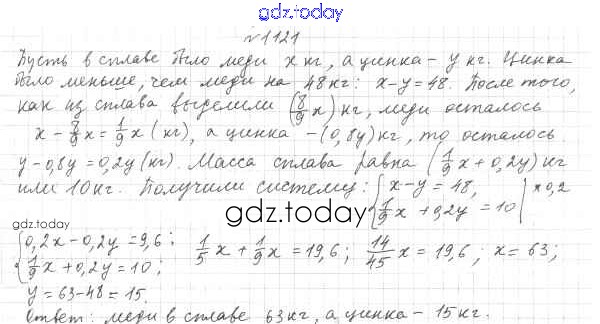 gdz.today
№1121
Пусть в сплаве было меди x кг, а цинка - y кг. Цинка
было меньше, чем меди на 48 кг: x-y=48. После того,
как из сплава выделили (8/9 x) кг, меди осталось
x - 8/9 x = 1/9 x (кг), а цинка - (0,8y) кг, то осталось
y-0,8y=0,2y (кг). Масса сплава равна (1/9 x + 0,2y) кг
или 10 кг. Получили систему: { x-y=48, | ×0,2
1/9 x + 0,2y = 10
gdz.today
gdz.today
{ 0,2x-0,2y=9,6; 1/5 x + 1/9 x = 19,6; 14/45 x = 19,6; x=63;
1/9 x + 0,2y = 10;
y = 63-48 = 15.
Ответ: меди в сплаве 63 кг, а цинка - 15 кг.